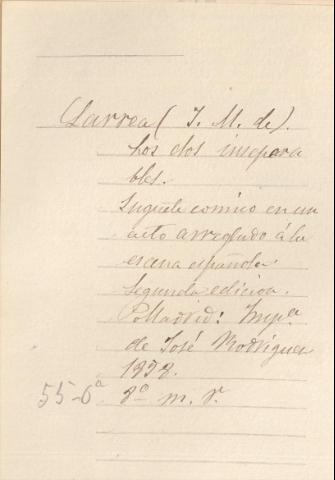 Larrea (J. M. de).
Los dos insepara
bles.
Juguete cómico en un
acto arreglado á la
escena española.
Segunda edicion.
Madrid: Impª
de José Rodríguez
18
55-6ª 8º m. r.